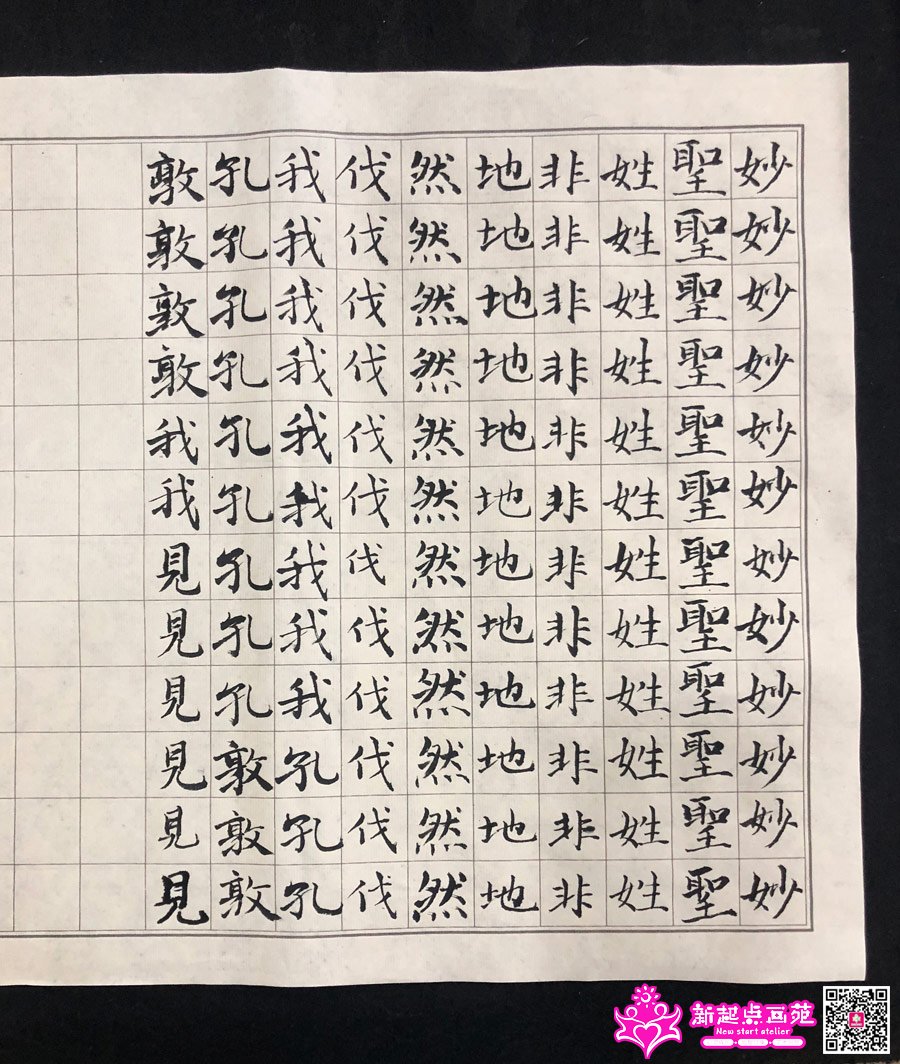 妙妙妙妙妙妙妙妙妙妙妙妙
聖聖聖聖聖聖聖聖聖聖聖聖
姓姓姓姓姓姓姓姓姓姓姓姓
非非非非非非非非非非非非
地地地地地地地地地地地地
然然然然然然然然然然然然
伐伐伐伐伐伐伐伐伐伐伐伐
我我我我我我我我我孔孔孔
孔孔孔孔孔孔孔孔孔敦敦敦
敦敦敦敦我我見見見見見見
新起点画苑
New start atelier